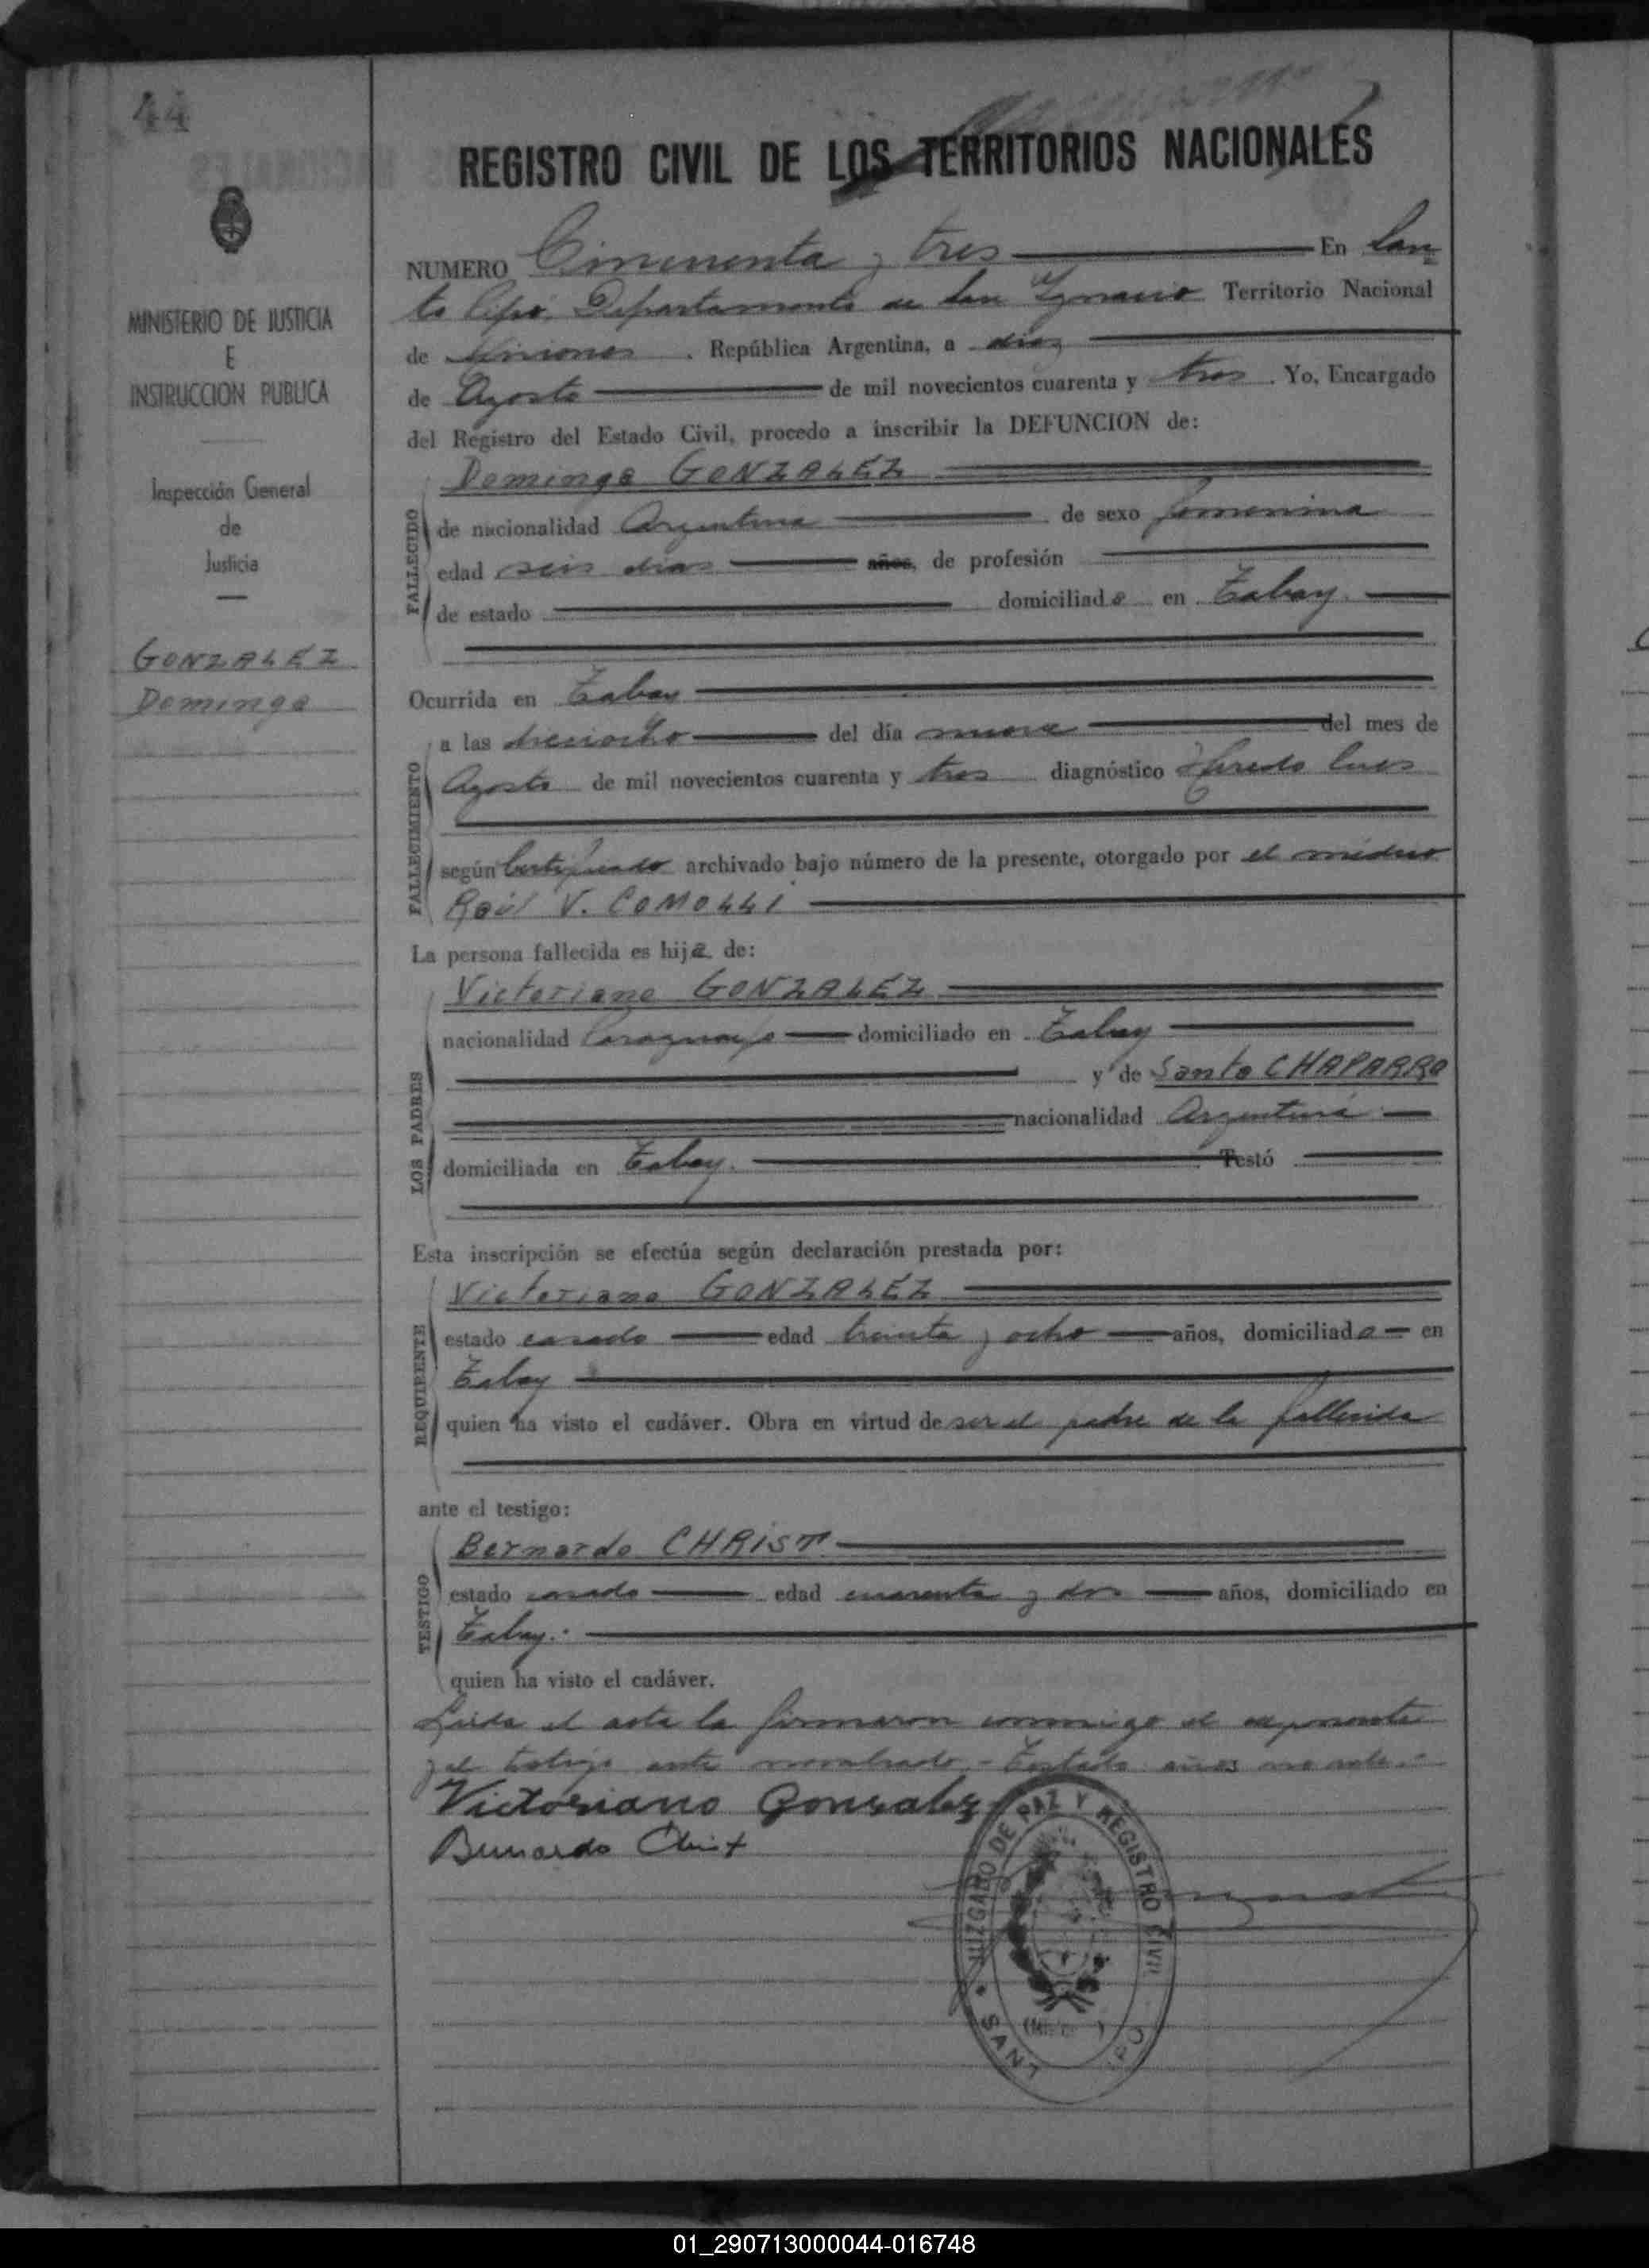 44
REGISTRO CIVIL DE LOS TERRITORIOS NACIONALES
MINISTERIO DE JUSTICIA
E
INSTRUCCION PUBLICA
Inspección General
de
Justicia
GONZALEZ
Dominga
NUMERO Cincuenta y tres En San
to Pipó, Departamento de San Ygnacio Territorio Nacional
de Misiones, República Argentina, a diez
de Agosto de mil novecientos cuarenta y tres. Yo, Encargado
del Registro del Estado Civil, procedo a inscribir la DEFUNCION de:
FALLECIDO
Dominga GONZALEZ
de nacionalidad Argentina de sexo femenina
edad seis dias años, de profesión
de estado domiciliada en Tabay.
Ocurrida en Tabay
FALLECIMIENTO
a las dieciocho del día nueve del mes de
Agosto de mil novecientos cuarenta y tres diagnóstico
según Certificado archivado bajo número de la presente, otorgado por el médico
Raúl V. COMOLLI
La persona fallecida es hija de:
LOS PADRES
Victoriano GONZALEZ
nacionalidad Paraguayo domiciliado en Tabay
y de Santa CHAPARRO
nacionalidad Argentina
domiciliada en Tabay. Testó
Esta inscripción se efectúa según declaración prestada por:
REQUIRENTE
Victoriano GONZALEZ
estado casado edad treinta y ocho años, domiciliado en
Tabay
quien ha visto el cadáver. Obra en virtud de ser el padre de la fallecida
ante el testigo:
TESTIGO
Bernardo CHRIST
estado casado edad cuarenta y dos años, domiciliado en
Tabay.
quien ha visto el cadáver.
Leida el acta la firmaron conmigo el exponente
y el testigo ante nombrado. - Testado: años no vale.
Victoriano Gonzalez
Bernardo Christ
JUZGADO DE PAZ Y REGISTRO CIVIL
SANT IPO
01_290713000044-016748